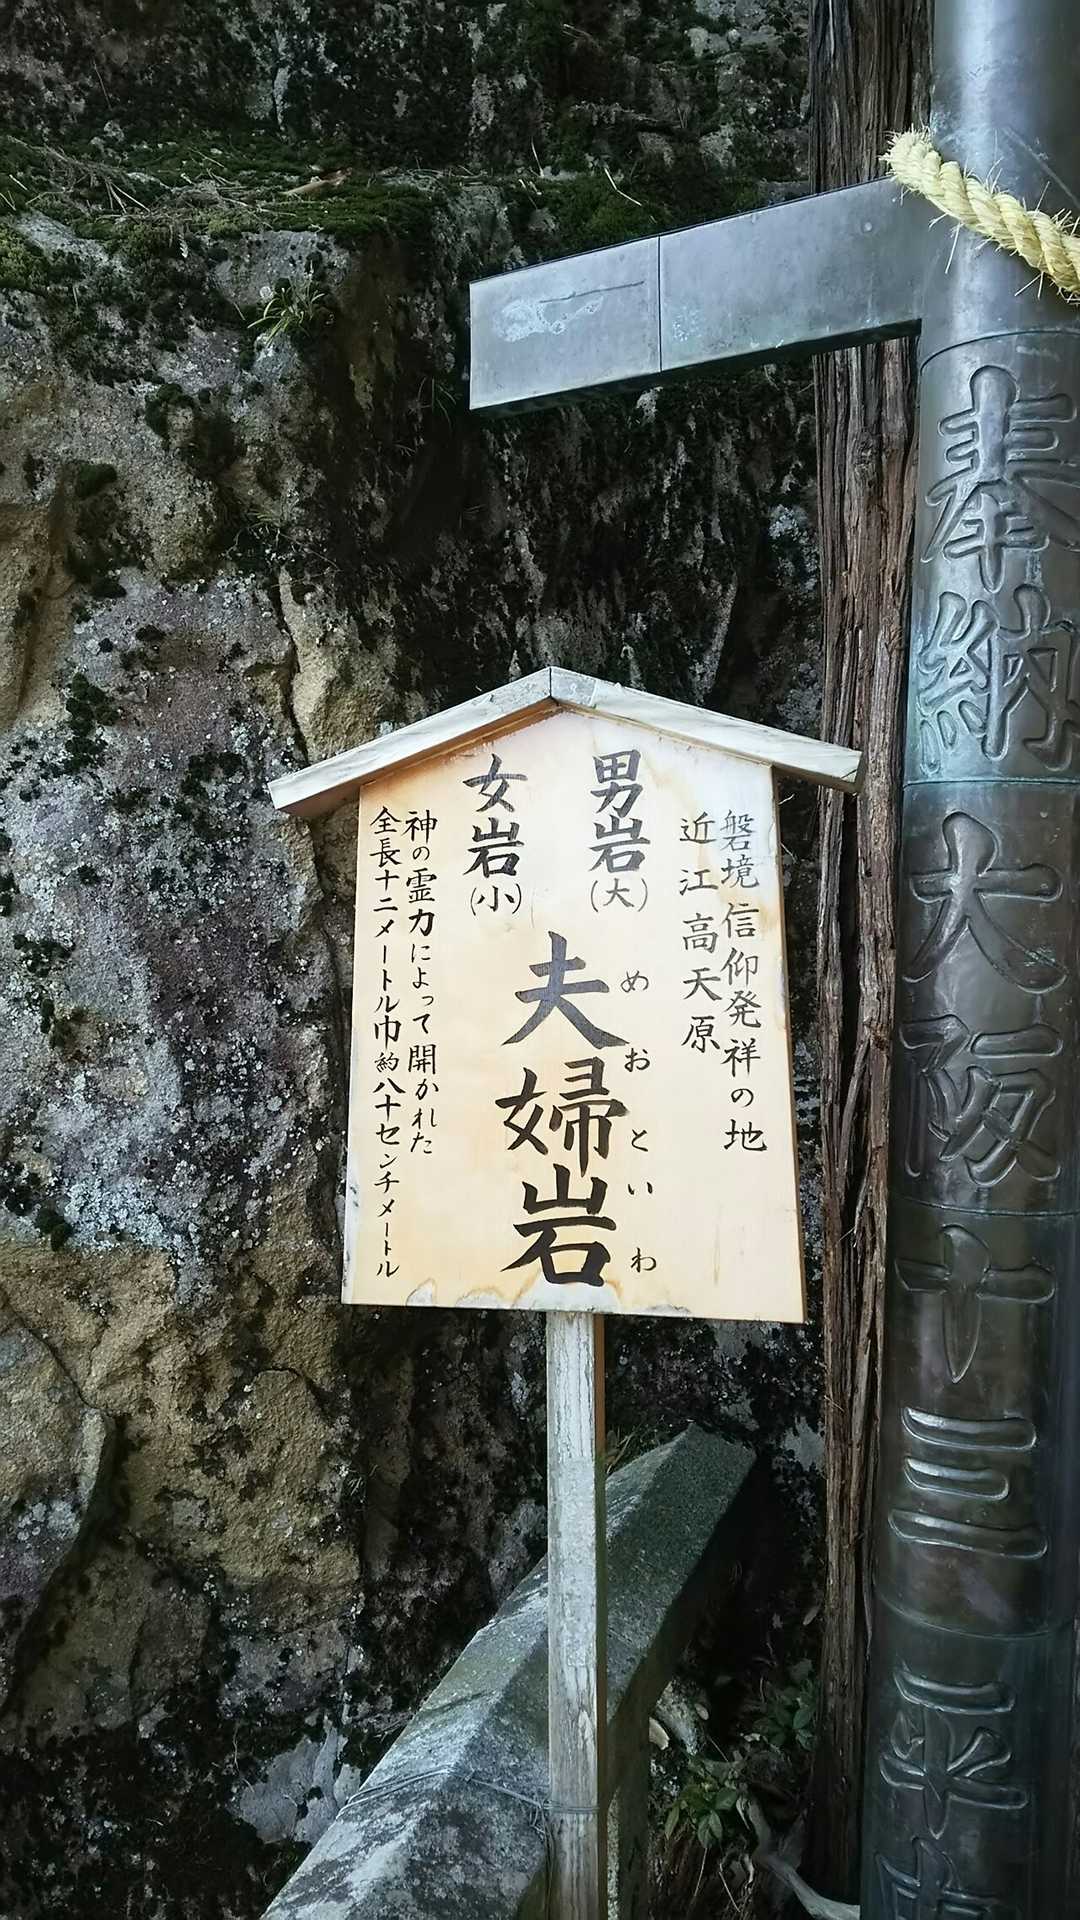 奉納
大阪十三平
磐境信仰発祥の地
近江高天原
男岩(大)
めおといわ
夫婦岩
女岩(小)
神の霊力によって開かれた
全長十二メートル巾約八十センチメートル